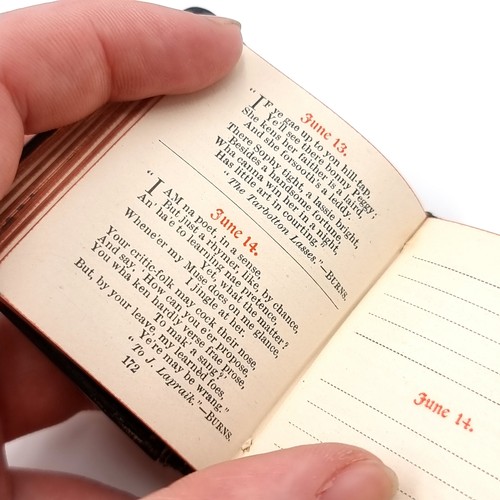 June 13.
"IF ye gae up to you hill-tap,
Ye'll see there bonny Peggy;
She kens her faither is a laird,
And she forsooth's a leddy.
There Sophy tight, a lassie bright,
Besides a handsome fortune,
Wha canna win her in a night,
Has little art in courting."
"The Tarbolton Lasses."—BURNS.
June 14.
"I AM na poet, in a sense,
But just a rhymer, like, by chance,
An' ha'e to learning nae pretence,
Yet, what the matter?
Whene'er my Muse does on me glance,
I jingle at her.
Your critic-folk may cock their nose,
And say, 'How can you e'er propose,
You wha ken hardly verse frae prose,
To mak a sang?'
But, by your leave, my learnèd foes,
Ye're may be wrang."
"To J Lapraik."—BURNS.
172
June 14.